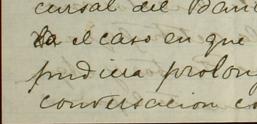 cursal del Ban
el caso en que
pudiera prolon
conversacion co